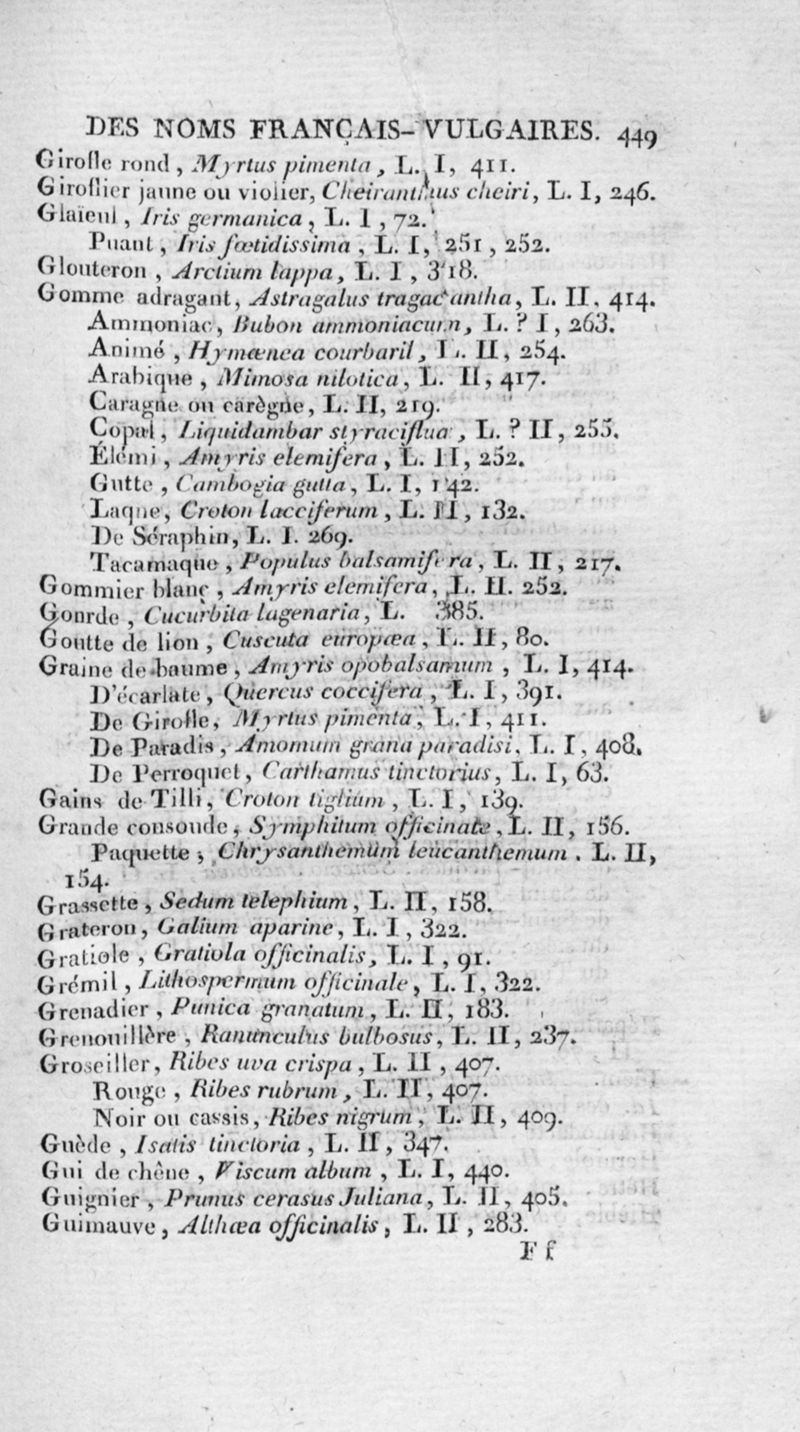 DES NOMS FRANÇAIS-VULGAIRES. 449
Girofle rond, Myrtus pimenta, L. I, 411.
Giroflier jaune ou violier, Cheiranthus cheiri, L. I, 246.
Glaïeul, Iris germanica, L. I, 72.
Puant, Iris fœtidissima, L. I, 251, 252.
Glouteron, Arctium lappa, L. I, 318.
Gomme adragant, Astragalus tragacantha, L. II, 414.
Ammoniac, Bubon ammoniacum, L. ? I, 263.
Animé, Hymœnea courbaril, L. II, 254.
Arabique, Mimosa nilotica, L. II, 417.
Caragne ou carègne, L. II, 219.
Copal, Liquidambar styraciflua, L. ? II, 255.
Élémi, Amyris elemifera, L. II, 252.
Gutte, Cambogia gutta, L. I, 142.
Laque, Croton lacciferum, L. II, 132.
De Séraphin, L. I. 269.
Tacamaque, Populus balsamifera, L. II, 217.
Gommier blanc, Amyris elemifera, L. II. 252.
Gourde, Cucurbita lagenaria, L. 385.
Goutte de lion, Cuscuta europœa, L. II, 80.
Graine de baume, Amyris opobalsamum, L. I, 414.
D'écarlate, Quercus coccifera, L. I, 391.
De Girofle, Myrtus pimenta, L. I, 411.
De Paradis, Amomum grana paradisi, L. I, 408.
De Perroquet, Carthamus tinctorius, L. I, 63.
Gains de Tilli, Croton tiglium, L. I, 139.
Grande consoude, Symphitum officinale, L. II, 156.
Paquette, Chrysanthemum leucanthemum. L. II,
154.
Grassette, Sedum telephium, L. II, 158.
Grateron, Galium aparine, L. I, 322.
Gratiole, Gratiola officinalis, L. I, 91.
Grémil, Lithospermum officinale, L. I, 322.
Grenadier, Punica granatum, L. II, 183.
Grenouillère, Ranunculus bulbosus, L. II, 237.
Groseiller, Ribes uva crispa, L. II, 407.
Rouge, Ribes rubrum, L. II, 407.
Noir ou cassis, Ribes nigrum, L. II, 409.
Guède, Isatis tinctoria, L. II, 347.
Gui de chêne, Viscum album, L. I, 440.
Guignier, Prunus cerasus Juliana, L. II, 405.
Guimauve, Althœa officinalis, L. II, 283.
F f